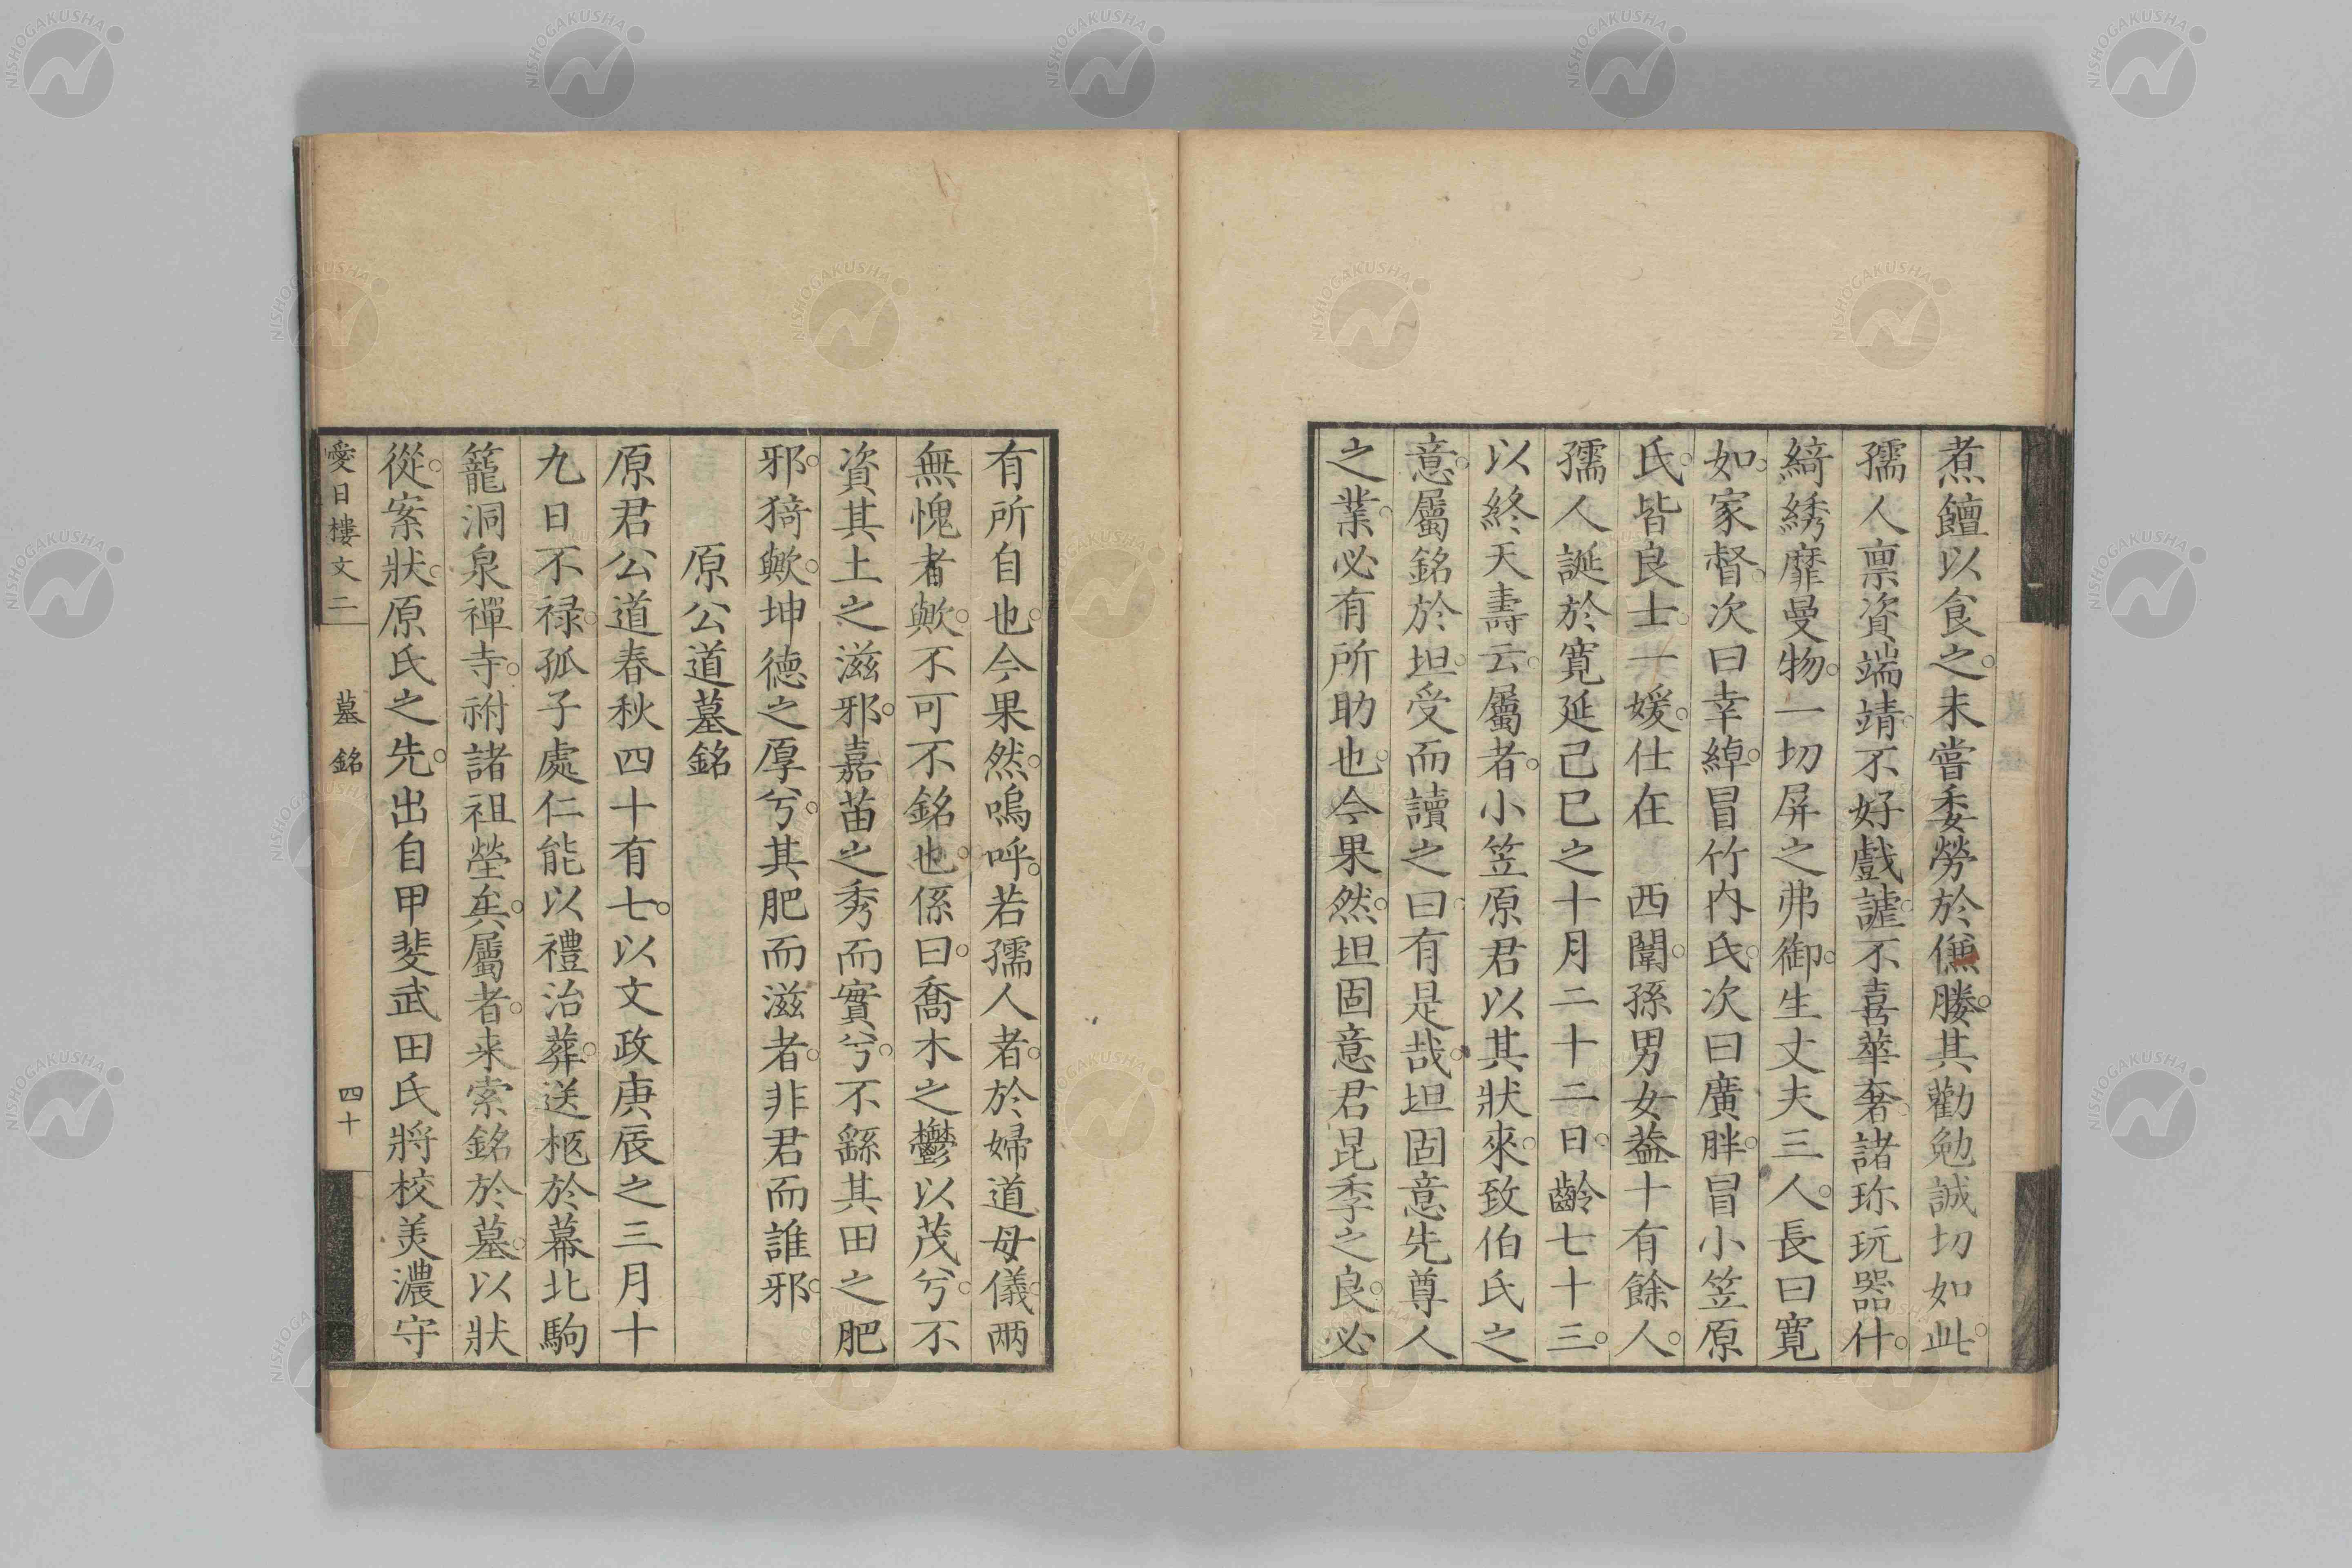 煮饘以食之。未嘗委勞於傔媵。其勸勉誠切如此。
孺人禀資端靖。不好戲謔。不喜華奢。諸珎玩器什。
綺綉靡曼物。一切屏之弗御。生丈夫三人。長曰寛
如。家督。次曰幸綽。冒竹内氏。次曰廣胖。冒小笠原
氏。皆良士。一媛。仕在　西闈。孫男女益十有餘人。
孺人誕於寛延己巳之十月二十二日。齡七十三。
以終天壽云。屬者。小笠原君以其狀來。致伯氏之
意。屬銘於坦。受而讀之曰。有是哉。坦固意先尊人
之業。必有所助也。今果然。坦固意君昆季之良。必
有所自也。今果然。嗚呼。若孺人者。於婦道母儀。兩
無愧者歟。不可不銘也。係曰。喬木之鬱以茂兮。不
資其土之滋邪。嘉苗之秀而實兮。不繇其田之肥
邪。猗歟。坤德之厚兮。其肥而滋者。非君而誰邪。
原公道墓銘
原君公道春秋四十有七。以文政庚辰之三月十
九日不禄。孤子處仁能以禮治葬。送柩於幕北駒
籠洞泉禪寺。祔諸祖塋矣。屬者。来索銘於墓。以狀
從。案狀。原氏之先。出自甲斐武田氏將校美濃守
愛日樓文二
墓銘
四十
NISHOGAKUSHA